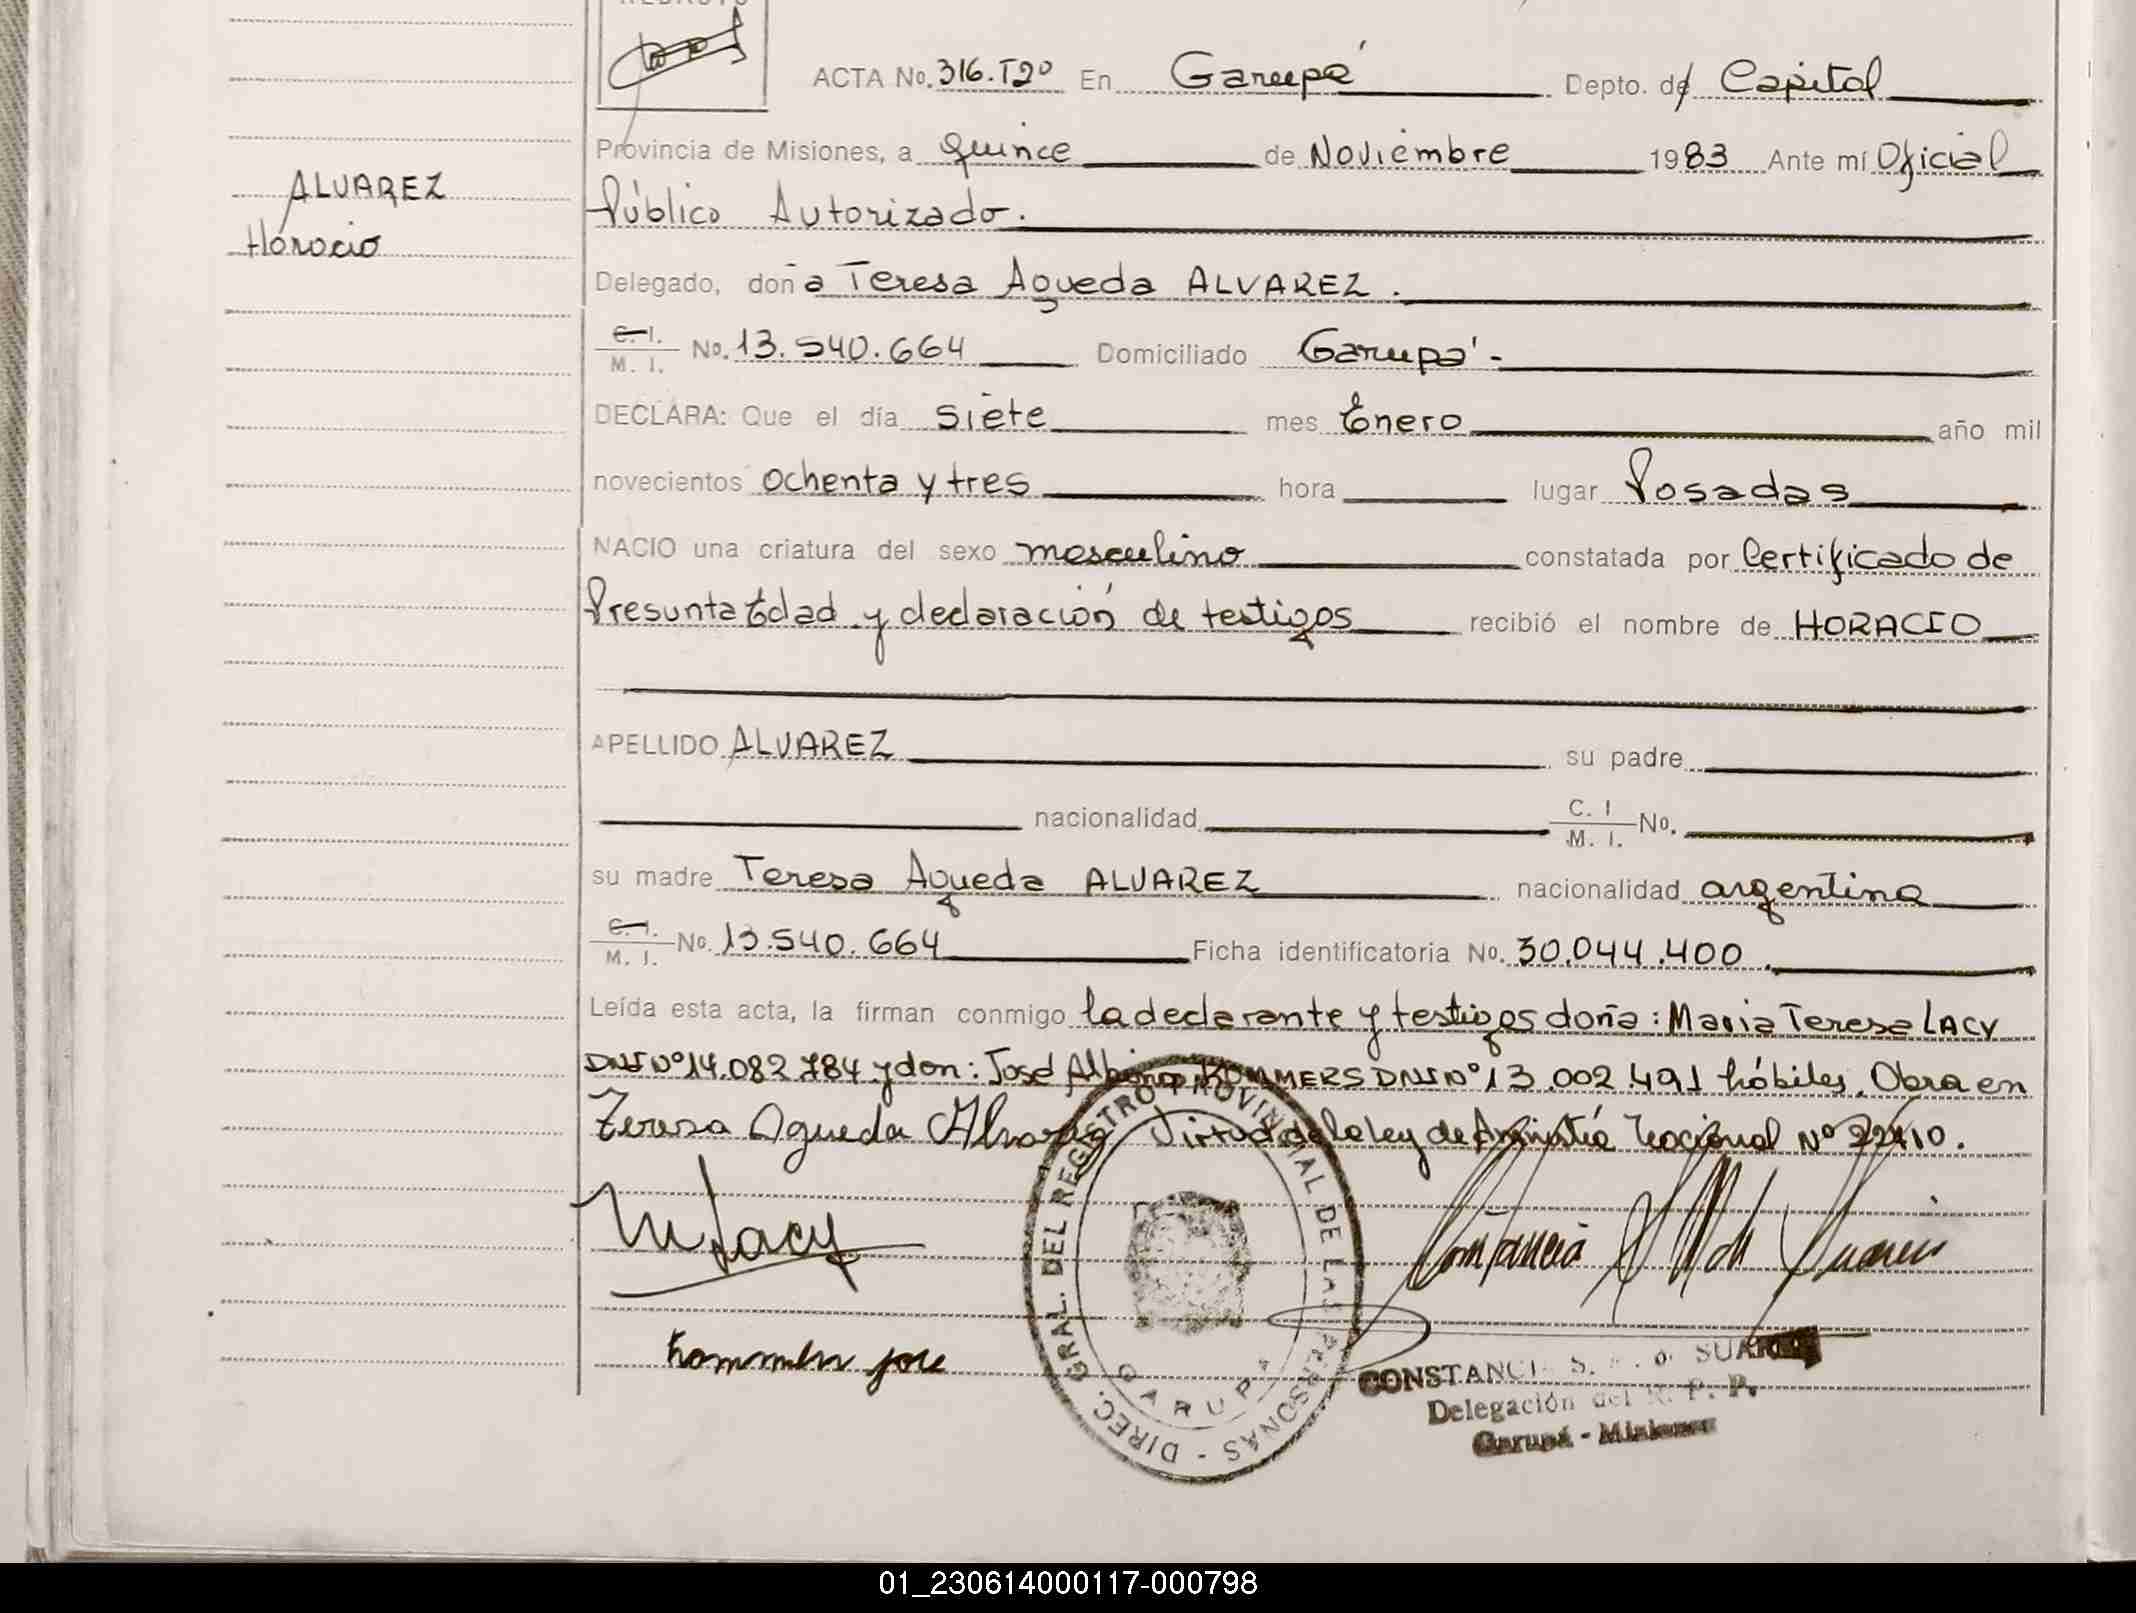 ACTA No. 316.T2º En Garupá Depto. de Capital
Provincia de Misiones, a quince de Noviembre 1983 Ante mí Oficial
ALVAREZ
Horacio
Público Autorizado.
Delegado, doña Teresa Agueda ALVAREZ.
C. I.
M. I. No. 13.540.664 Domiciliado Garupá.-
DECLARA: Que el día siete mes Enero año mil
novecientos ochenta y tres hora lugar Posadas
NACIO una criatura del sexo masculino constatada por Certificado de
Presunta Edad y declaración de testigos recibió el nombre de HORACIO
APELLIDO ALVAREZ su padre
nacionalidad C. I
M. I. No.
su madre Teresa Agueda ALVAREZ nacionalidad argentina
C. I.
M. I. No. 13.540.664 Ficha identificatoria No. 30.044.400.
Leída esta acta, la firman conmigo la declarante y testigos doña: Maria Teresa LACY
DNI Nº 14.082.784 y don: José KOMMERS DNI Nº 13.002.491 hábiles. Obra en
Teresa Agueda Alvarez Virtud de la ley de Amnistía Nacional Nº 22410.
M Lacy
Constancia
Kommers jose
DIREC. GRAL. DEL REGISTRO PROVINCIAL DE LAS PERSONAS -
GARUPA
S. SUAREZ
Delegación del R. P. P.
Garupá - Misiones
01_230614000117-000798